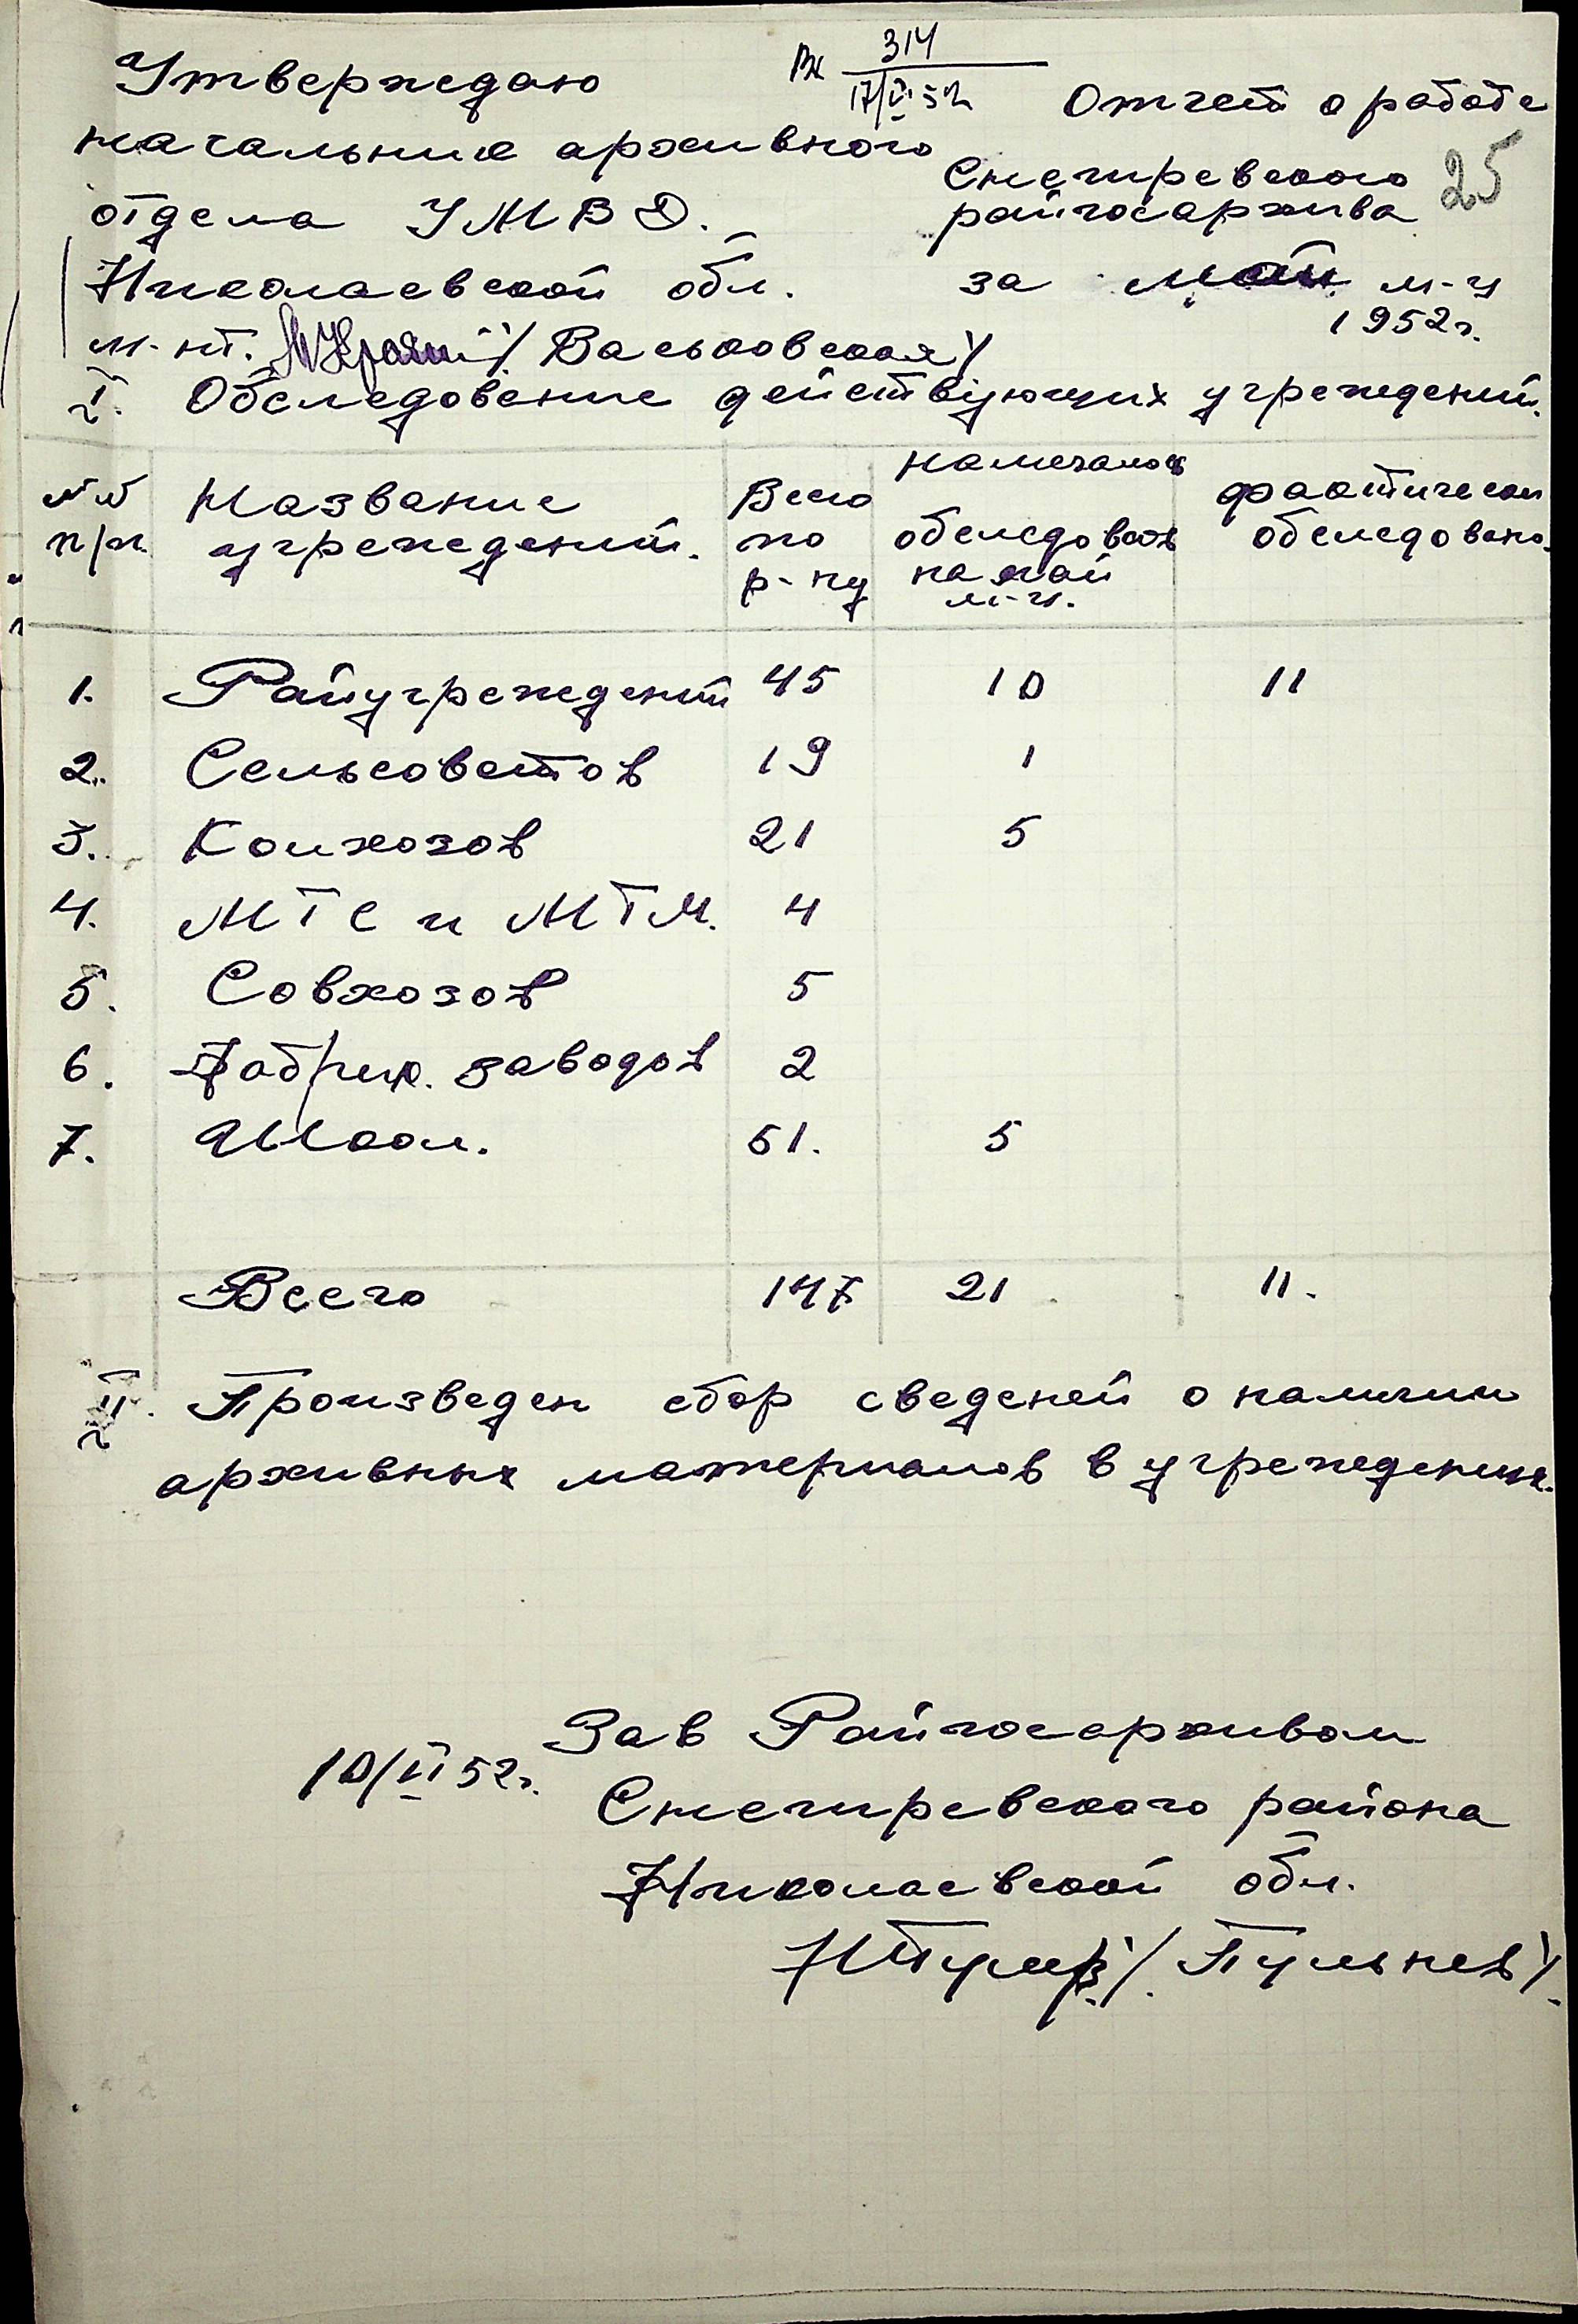 Утверждаю
начальник архивного
отдела УМВД.
Николаевской обл.
м-нт. /Васьковская/
Вх 314
17/VI 52
Отчет о работе
Снегиревского
райгосархива
25
за май м-ц
1952г.
I. Обследование действующих учреждений.
№№ п/п. Название учреждений. Всего по р-ну намечалось обследовать на май м-ц. фактически обследовано.
1. Райучреждений 45 10 11
2. Сельсоветов 19 1
3. Колхозов 21 5
4. МТС и МТМ. 4
5. Совхозов 5
6. Фабрик. заводов 2
7. Школ. 51. 5
Всего 147 21 11.
II. Произведен сбор сведений о наличии
архивных материалов в учреждениях.
Зав Райгосархивом
10/VI 52г.
Снегиревского района
Николаевской обл.
/Пульнев/.